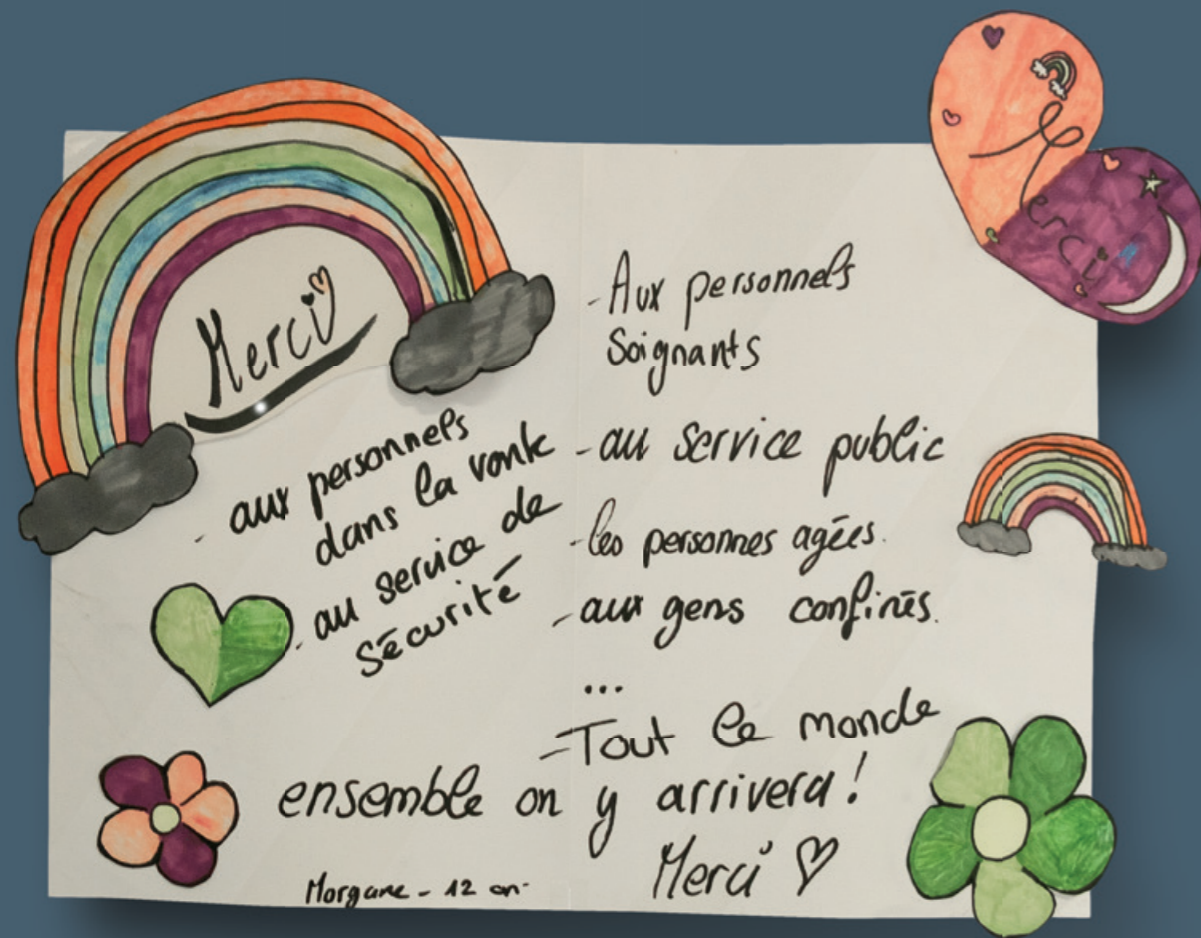 Merci
- aux personnels
dans la vente
- au service de
sécurité
Merci
- Aux personnels
Soignants
- au service public
- les personnes agées.
- aux gens confinés.
...
- Tout le monde
ensemble on y arrivera !
Merci ♡
Morgane - 12 an